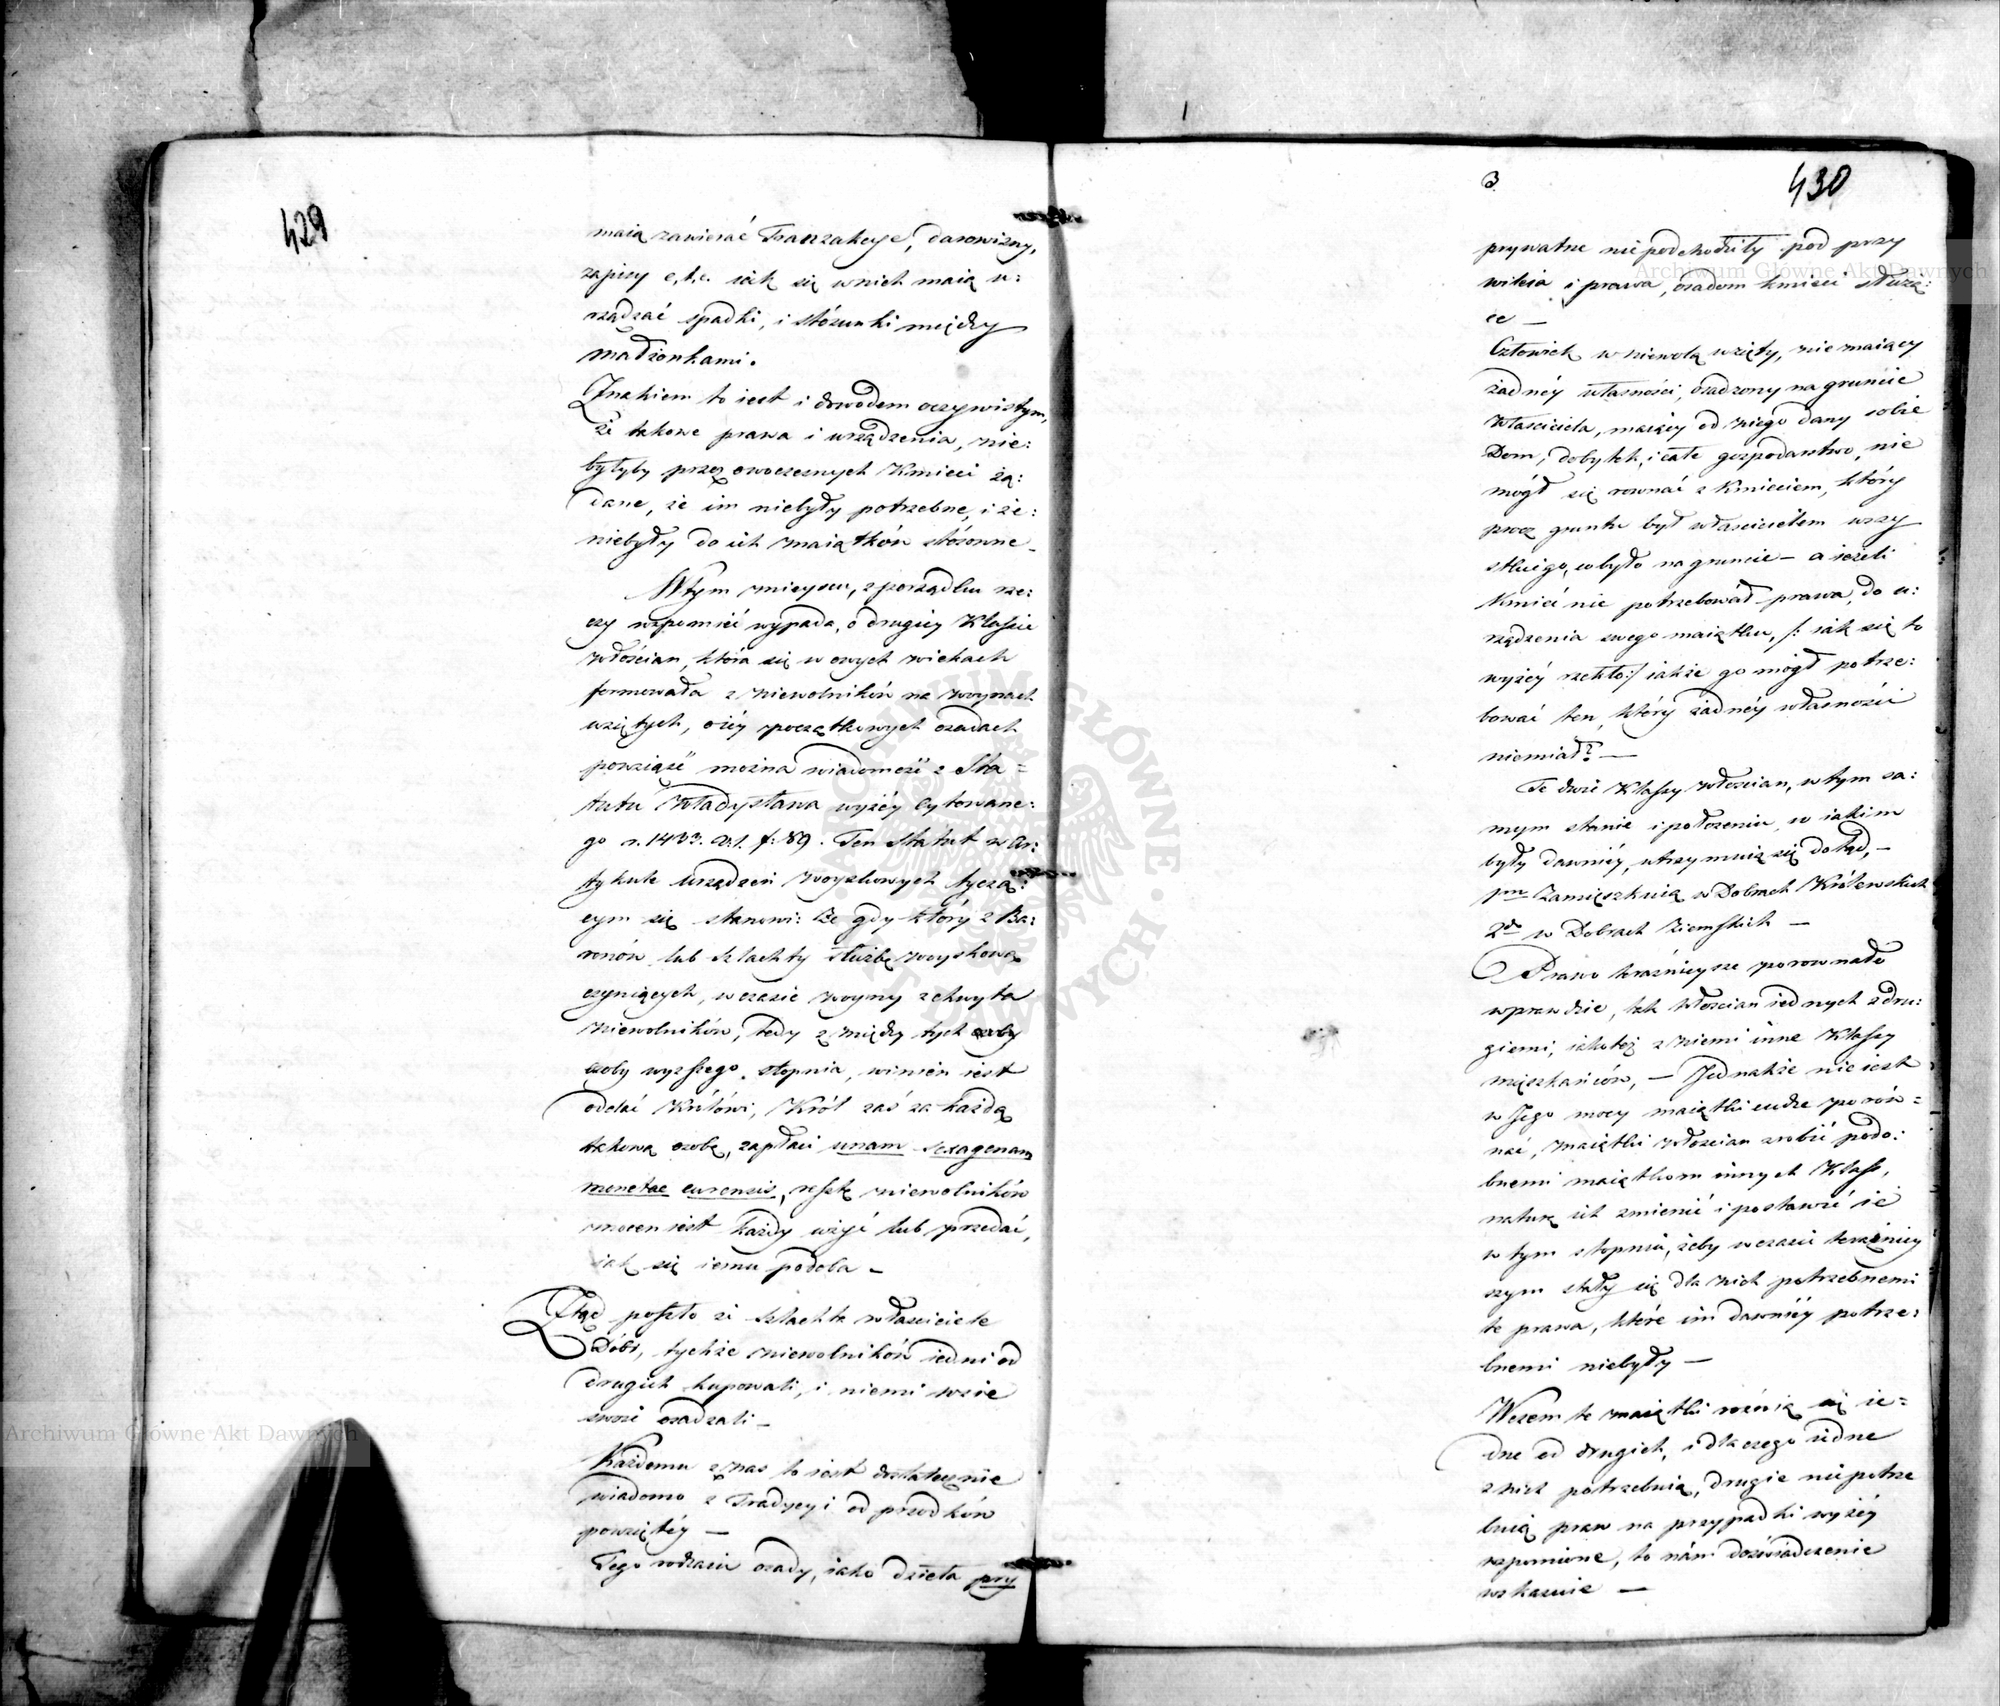 429
maią zawierać Tranzakcye, darowizny,
zapisy e,t,c. iak się w nich maią u:
rządzać spadki, i stósunki między
małżonkami.
Znakiem to iest i dowodem oczywistym,
że takowe prawa i urządzenia, nie:
byłyby przez owoczesnych Kmieci żą:
dane, że im niebyły potrzebne, i że:
niebyły do ich maiątków stósowne –
W tym mieyscu, z porządku rze:
czy wspomnieć wypada, o drugiey Klassie
włościan, która się w owych wiekach
formowała z niewolników na woynach
wziętych, o iéy początkowych osadach
powziąść można wiadomość z Sta =
tutu Władysława wyżéy cytowane:
go r. 1433. v: 1. f: 89. Ten Statut w ar:
tykule urządzeń woyskowych tyczą:
cym się stanowi: Że gdy który z Ba:
ronów lub Szlachty służbę woyskową
czyniących, w czasie woyny schwyta
niewolników, tedy z między tych
osoby wyższego stopnia, winien iest
oddać Królowi, Król zaś za każdą
takową osobę, zapłaci unam sexagenam
monetae currensis, resztę niewolników
mocen iest każdy użyć lub przedać,
iak się iemu podoba –
Ztąd poszło że Szlachta właściciele
Dóbr, tychże niewolników iedni od
drugich kupowali, i niemi wsie
swoie osadzali –
Każdemu z nas to iest dostatecznie
wiadomo z Tradycyi od przodków
powziętéy –
Tego rodzaiu osady, iako dzieła pry
3
430
prywatne nie podchodziły pod przy
wileia i prawa, osadom kmieci służą:
ce –
Człowiek w niewolą wzięty, nie maiący
żadnéy własności, osadzony na gruncie
właściciela, maiący od niego dany sobie
Dom, dobytek, i całe gospodarstwo, nie
mógł się rownać z Kmieciem, który
procz gruntu był właścicielem wszy
stkiego, co było na gruncie – a ieżeli
Kmieć nie potrzebował prawa, do u:
rządzenia swego maiątku, /: iak się to
wyżéy rzekło :/ iakże go mógł potrze:
bować ten, który żadnéy własności
niemiał? –
Te dwie Klassy włościan, w tym sa:
mym stanie i położeniu, w iakim
były dawniéy, utrzymuią się dotąd, –
1mo Zamieszkuią w Dobrach Królewskich
2do w Dobrach Ziemskich –
Prawo teraźnieysze porownało
wprawdzie, tak Włościan iednych z dru:
giemi, iakoteż z niemi inne Klassy
mięszkańców, – Jednakże nie iest
w Jego mocy maiątki cudze porów =
nać, maiątki włościan zrobić podo:
bnemi maiątkom innych Klass,
naturę ich zmienić i postawić ie
w tym stopniu, żeby w czasie teraźniey
szym stały się dla nich potrzebnemi
te prawa, które im dawniéy potrze:
bnemi niebyły –
W czem te maiątki rożnią się ie =
dne od drugich, i dla czego iedne
z nich potrzebuią, drugie nie potrze
buią praw na przypadki wyżéy
wspomnione, to nam doświadczenie
wskazuie –
Archiwum Główne Akt Dawnych
Archiwum Główne Akt Dawnych
ARCHIWUM GŁÓWNE AKT DAWNYCH